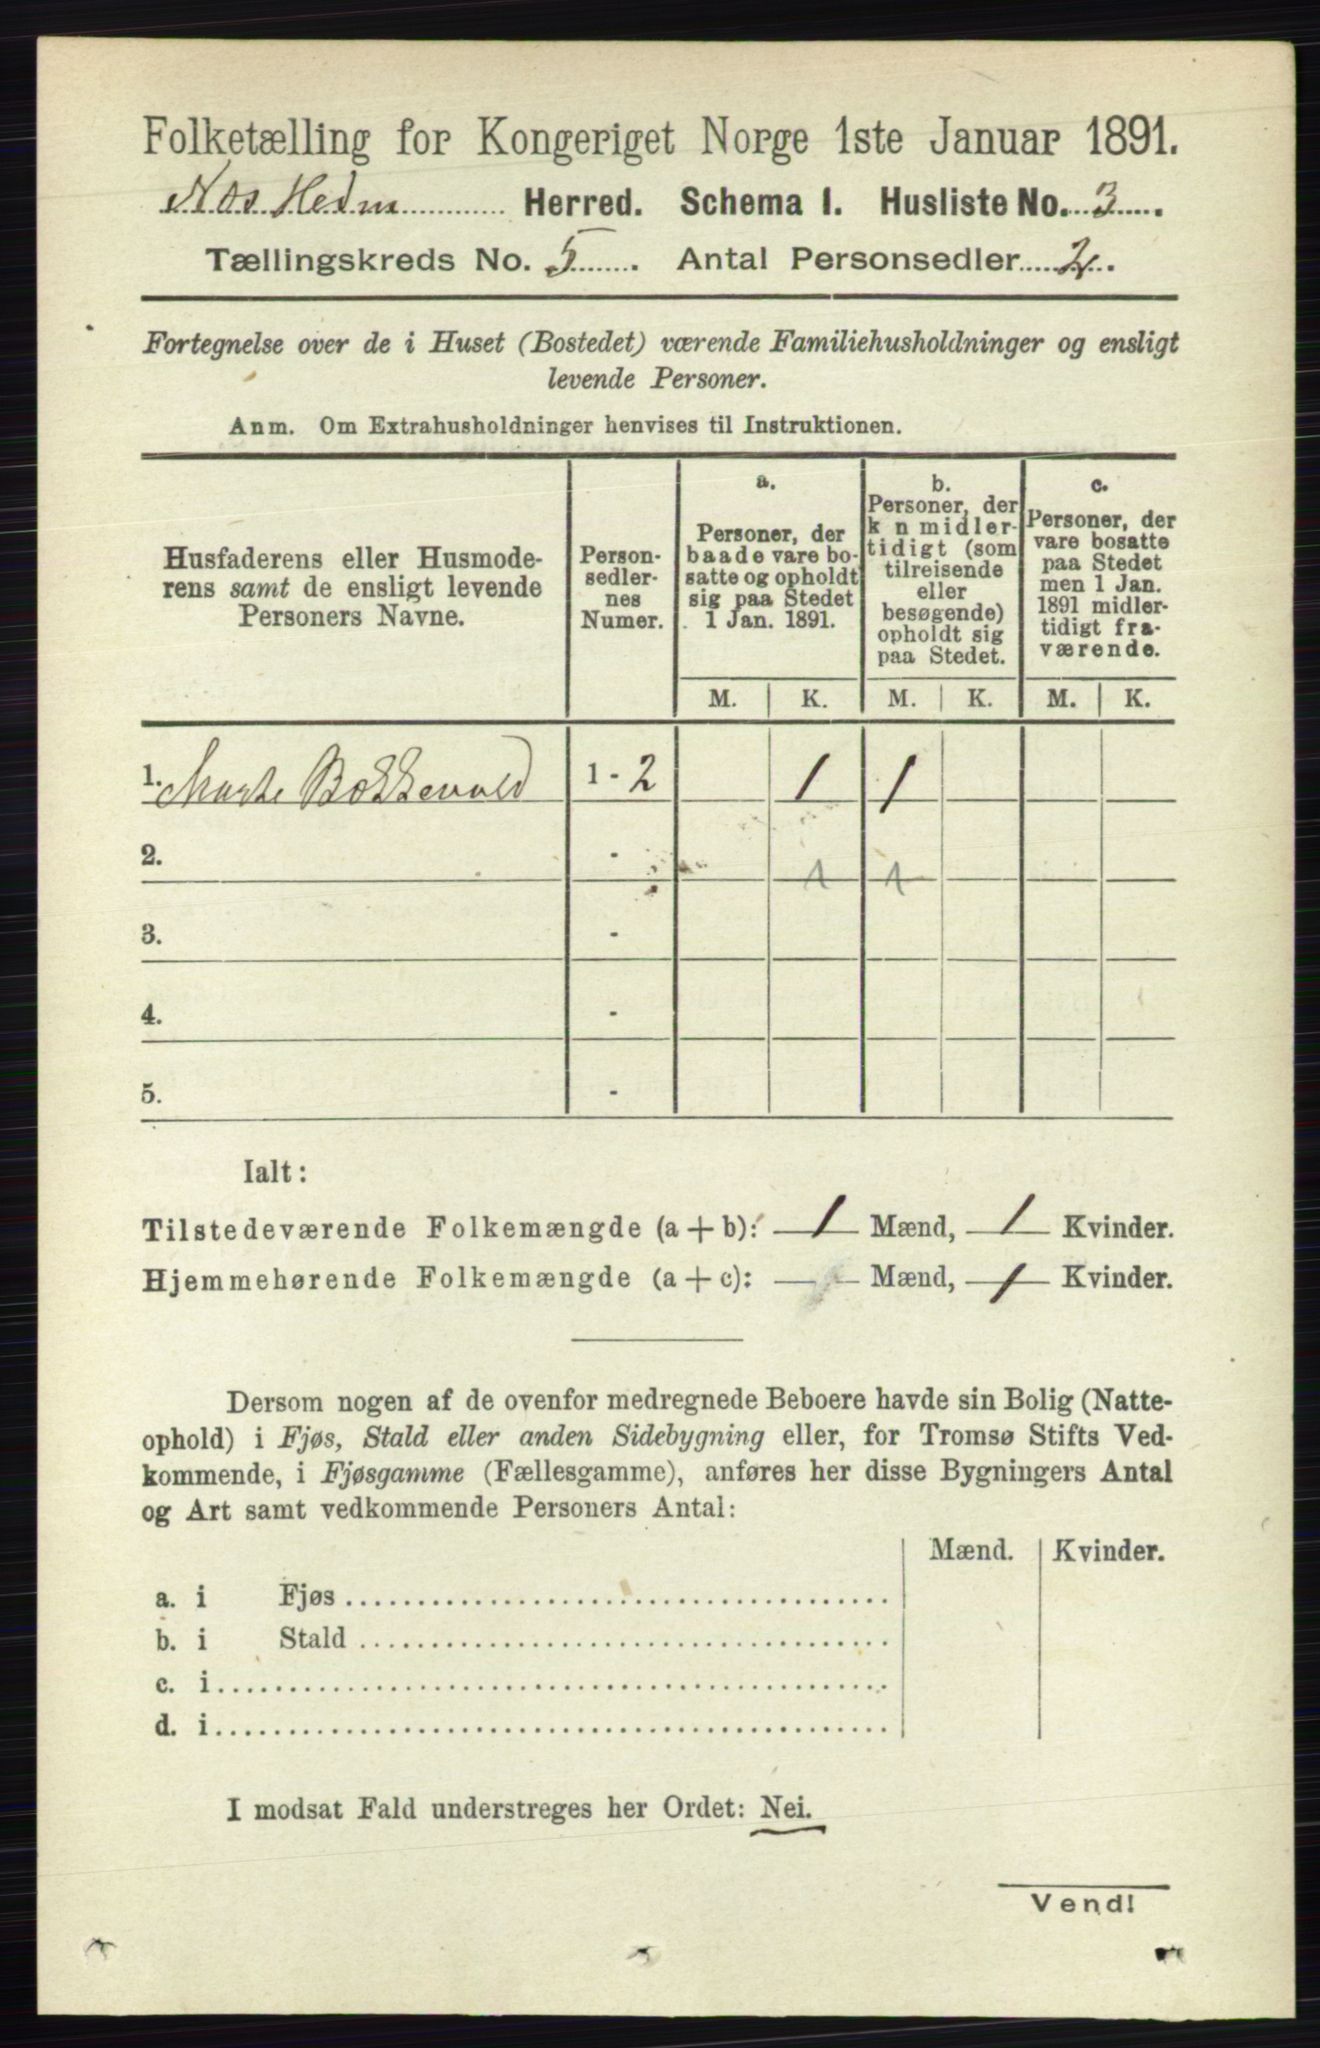 Folketælling for Kongeriget Norge 1ste Januar 1891.
Næs Hedm Herred. Schema I. Husliste No. 3.
Tællingskreds No. 5. Antal Personsedler 2.
Fortegnelse over de i Huset (Bostedet) værende Familiehusholdninger og ensligt
levende Personer.
Anm. Om Extrahusholdninger henvises til Instruktionen.
Husfaderens eller Husmode-
rens samt de ensligt levende
Personers Navne.
Person-
sedler-
nes
Numer.
a.
Personer, der
baade vare bo-
satte og opholdt
sig paa Stedet
1 Jan. 1891.
b.
Personer, der
k n midler-
tidigt (som
tilreisende
eller
besøgende)
opholdt sig
paa Stedet.
c.
Personer, der
vare bosatte
paa Stedet
men 1 Jan.
1891 midler-
tidigt fra-
værende.
M. K. M. K. M. K.
1. Marte Bækkevold 1 - 2 1 1
2. - 1 1
3. -
4. -
5. -
Ialt:
Tilstedeværende Folkemængde (a + b): 1 Mænd, 1 Kvinder.
Hjemmehørende Folkemængde (a + c): — Mænd, 1 Kvinder.
Dersom nogen af de ovenfor medregnede Beboere havde sin Bolig (Natte-
ophold) i Fjøs, Stald eller anden Sidebygning eller, for Tromsø Stifts Ved-
kommende, i Fjøsgamme (Fællesgamme), anføres her disse Bygningers Antal
og Art samt vedkommende Personers Antal:
Mænd. Kvinder.
a. i Fjøs
b. i Stald
c. i
d. i
I modsat Fald understreges her Ordet: Nei.
Vend!